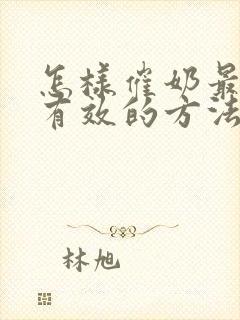 怎样催奶最
有效的方法
林旭